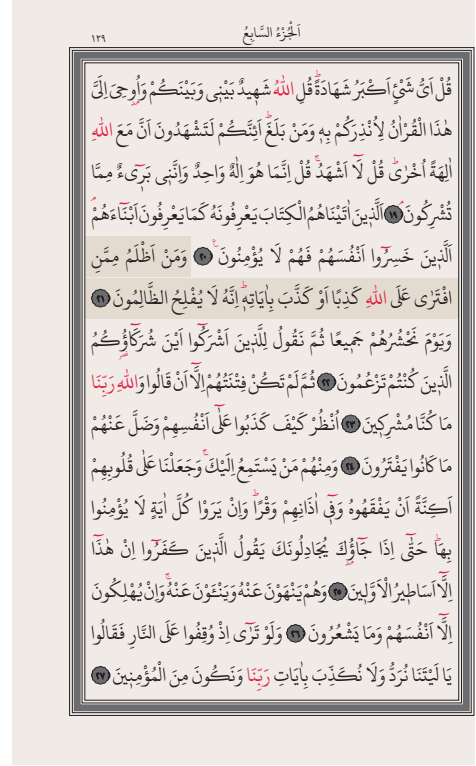 اَلْجُزْءُ السَّابِعُ
١٢٩
قُلْ اَىُّ شَىْءٍ اَكْبَرُ شَهَادَةًۜ قُلِ اللّٰهُ شَهٖيدٌ بَيْنٖى وَبَيْنَكُمْ وَاُوحِىَ اِلَىَّ
هٰذَا الْقُرْاٰنُ لِاُنْذِرَكُمْ بِهٖ وَمَنْ بَلَغَۜ اَئِنَّكُمْ لَتَشْهَدُونَ اَنَّ مَعَ اللّٰهِ
اٰلِهَةً اُخْرٰىۜ قُلْ لَٓا اَشْهَدُۚ قُلْ اِنَّمَا هُوَ اِلٰهٌ وَاحِدٌ وَاِنَّنٖى بَرٖٓىءٌ مِمَّا
تُشْرِكُونَۢ ﴿١٩﴾ اَلَّذٖينَ اٰتَيْنَاهُمُ الْكِتَابَ يَعْرِفُونَهُ كَمَا يَعْرِفُونَ اَبْنَٓاءَهُمْۢ
اَلَّذٖينَ خَسِرُٓوا اَنْفُسَهُمْ فَهُمْ لَا يُؤْمِنُونَۚ ﴿٢٠﴾ وَمَنْ اَظْلَمُ مِمَّنِ
افْتَرٰى عَلَى اللّٰهِ كَذِبًا اَوْ كَذَّبَ بِاٰيَاتِهٖۜ اِنَّهُ لَا يُفْلِحُ الظَّالِمُونَ ﴿٢١﴾
وَيَوْمَ نَحْشُرُهُمْ جَمٖيعًا ثُمَّ نَقُولُ لِلَّذٖينَ اَشْرَكُٓوا اَيْنَ شُرَكَٓاؤُ۬كُمُ
الَّذٖينَ كُنْتُمْ تَزْعُمُونَ ﴿٢٢﴾ ثُمَّ لَمْ تَكُنْ فِتْنَتُهُمْ اِلَّٓا اَنْ قَالُوا وَاللّٰهِ رَبِّنَا
مَا كُنَّا مُشْرِكٖينَ ﴿٢٣﴾ اُنْظُرْ كَيْفَ كَذَبُوا عَلٰٓى اَنْفُسِهِمْ وَضَلَّ عَنْهُمْ
مَا كَانُوا يَفْتَرُونَ ﴿٢٤﴾ وَمِنْهُمْ مَنْ يَسْتَمِعُ اِلَيْكَۚ وَجَعَلْنَا عَلٰى قُلُوبِهِمْ
اَكِنَّةً اَنْ يَفْقَهُوهُ وَفٖٓى اٰذَانِهِمْ وَقْرًاۜ وَاِنْ يَرَوْا كُلَّ اٰيَةٍ لَا يُؤْمِنُوا
بِهَاۜ حَتّٰٓى اِذَا جَٓاؤُ۫كَ يُجَادِلُونَكَ يَقُولُ الَّذٖينَ كَفَرُٓوا اِنْ هٰذَٓا
اِلَّٓا اَسَاطٖيرُ الْاَوَّلٖينَ ﴿٢٥﴾ وَهُمْ يَنْهَوْنَ عَنْهُ وَيَنْـَٔوْنَ عَنْهُۚ وَاِنْ يُهْلِكُونَ
اِلَّٓا اَنْفُسَهُمْ وَمَا يَشْعُرُونَ ﴿٢٦﴾ وَلَوْ تَرٰٓى اِذْ وُقِفُوا عَلَى النَّارِ فَقَالُوا
يَا لَيْتَنَا نُرَدُّ وَلَا نُكَذِّبَ بِاٰيَاتِ رَبِّنَا وَنَكُونَ مِنَ الْمُؤْمِنٖينَ ﴿٢٧﴾